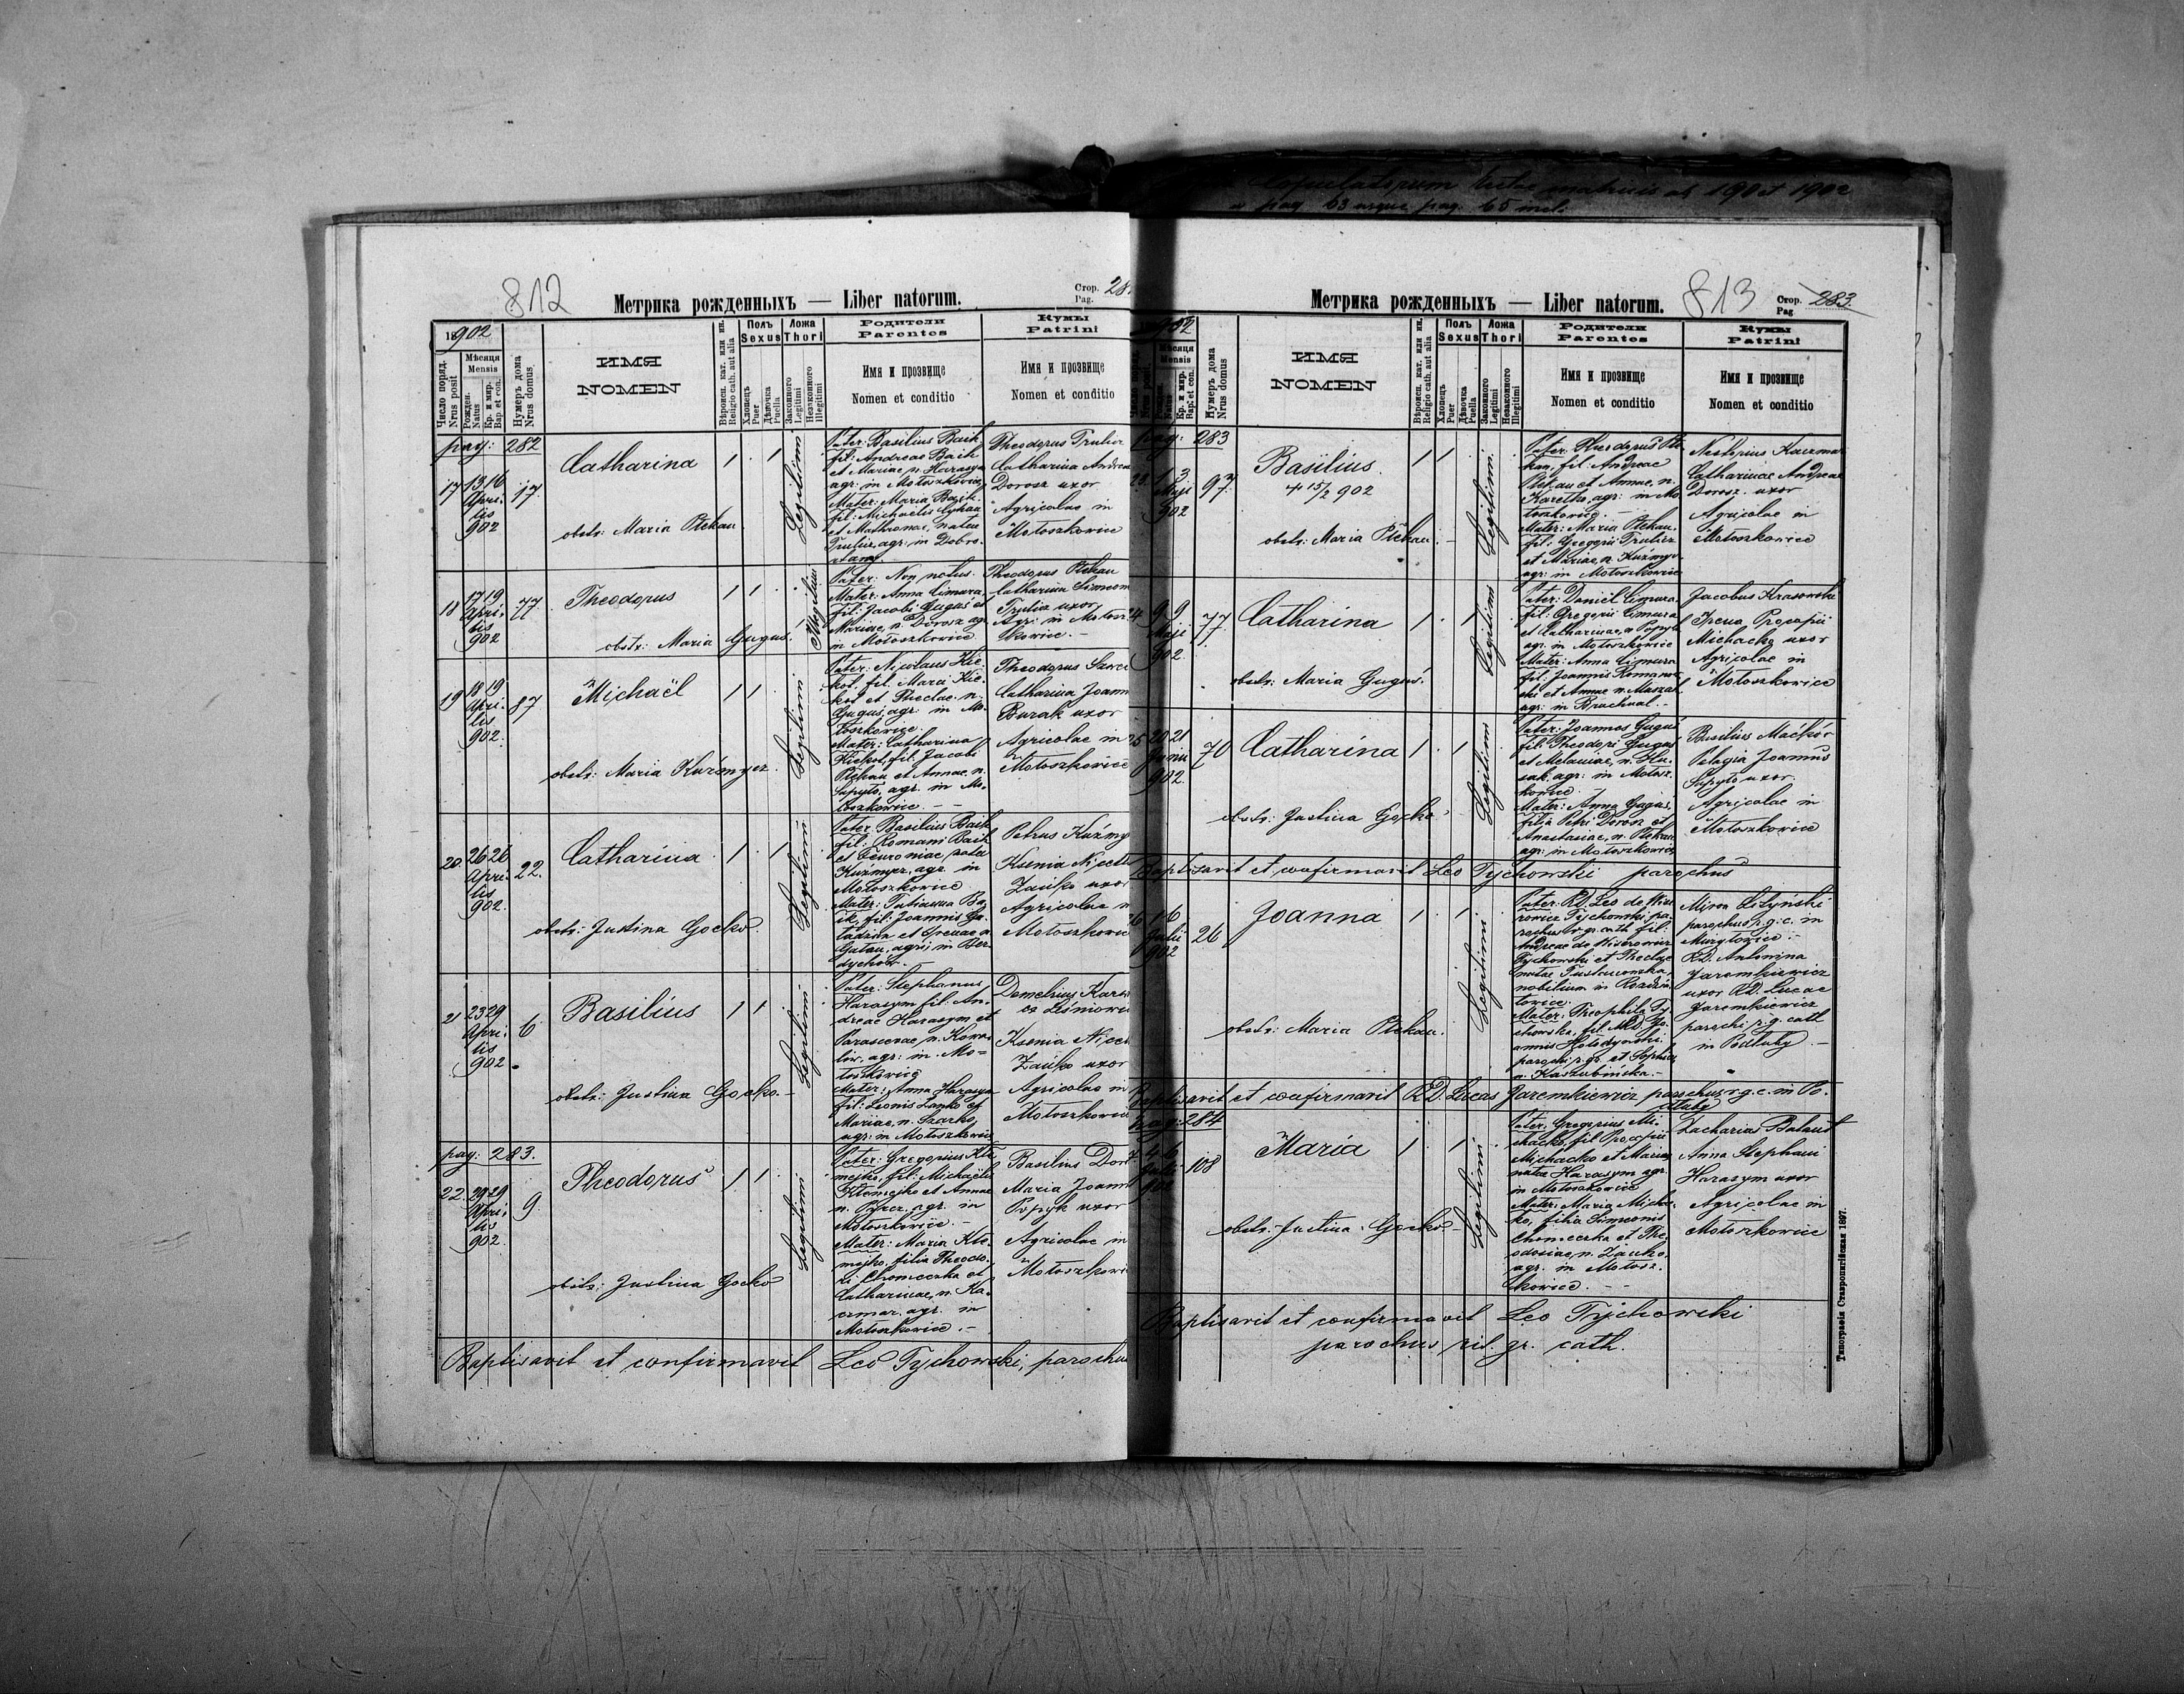 Copulatorum
a pag 63 usque pag. 65 incl.
812
Метрика рожденныхъ — Liber natorum.
Стор. Pag. 28
1902
Число поряд. Nrus posit
Мѣсяця Mensis
Рожден. Natus
Кр. и мир. Bap. et con.
Нумеръ дома Nrus domus
ИМЯ
NOMEN
Вѣроисп. кат. или ин. Religio cath. aut alia
Полъ Sexus
Хлопець Puer
Дѣвочка Puella
Ложа Thori
Законного Legitimi
Незаконного Illegitimi
Родители
Parentes
Имя и прозвище
Nomen et conditio
Кумы
Patrini
Имя и прозвище
Nomen et conditio
pag: 282
17
13 16
Apri-
lis
902
17
Catharina
obstr: Maria Ptekau
1 . 1
Legitimi
Pater: Basilius Baik
fil: Andreae Baik
et Mariae n. Harasym
agr: in Mołoszkowice
Mater: Maria Baik
fil: Michaelis
et Mathronae, natae
agr: in Dobro-
Theodorus
Catharina Andreae
Dorosz uxor
Agricolae in
Mołoszkowice
18
17 19
Apri-
lis
902
77
Theodorus
obstr: Maria Guguś
1 1 .
Illegitimi
Pater: Non notus
Mater: Anna Cimura,
fil: Jacobi Guguś et
Mariae, n. Dorosz agr.
in Mołoszkowice
Theodorus Ptekau
Catharina Simeon
uxor
Agr: in Mołosz-
kowice.
19
18 19
Apri-
lis
902.
87
Michaël
obstr: Maria Kuźmycz
1 1
Legitimi
Pater: Nicolaus Kie-
kot, fil. Marci Kie-
kot et Theclae n.
Guguś, agr. in Mo-
łoszkowice.
Mater: Catharina
Kiekot, fil. Jacobi
Ptekau et Annae, n.
Sapyto, agr. in Mo-
łoszkowice. — —
Theodorus
Catharina Joann
Burak uxor
Agricolae in
Mołoszkowice
20
26 26
Apri-
lis
902.
22.
Catharina
obstr: Justina Gocko.
1 . 1
Legitimi
Pater: Basilius Baik
fil: Romani Baik
et Feuroniae natae
Kuźmycz, agr. in
Mołoszkowice
Mater: Ba-
ik, fil: Joannis
agr: in Ber-
dychów. —
Petrus Kuźmy
Ksenia
Zańko uxor
Agricolae
Mołoszkowic
21
23 29
Apri-
lis
902.
6
Basilius
obstr: Justina Gocko. —
1 1
Legitimi
Pater: Stephanus
Harasym fil: An-
dreae Harasym et
Parascevae, n. Kowa-
lów, agr: in Mo-
łoszkowice
Mater: Anna Harasym
fil: Leonis Zańko et
Mariae, n.
agr: in Mołoszkowice
Demetrius
Ksenia
Zańko uxor
Agricolae in
Mołoszkowice
pag: 283.
22.
29 29
Apri-
lis
902.
9
Theodorus
obstr: Justina Gocko
1 1
Legitimi
Pater: Gregorius Kle-
mejko, fil: Michaëlis
Klemejko et Annae
agr: in
Mołoszkowice. —
Mater: Maria Kle-
mejko, filia Theodo-
ri Chomeczka et
Catharinae, n. Ka-
czmar, agr. in
Mołoszkowice. —
Basilius Dor
Maria Joann
Popyk uxor
Agricolae in
Mołoszkowi
Baptisavit et confirmavit Leo Tychowski, parochus
Метрика рожденныхъ — Liber natorum.
813
Стор. Pag 283
902
Мѣсяця Mensis
Кр. и мир. Bap. et con.
Нумеръ дома Nrus domus
ИМЯ
NOMEN
Вѣроисп. кат. или ин. Religio cath. aut alia
Полъ Sexus
Хлопець Puer
Дѣвочка Puella
Ложа Thori
Законного Legitimi
Незаконного Illegitimi
Родители
Parentes
Имя и прозвище
Nomen et conditio
Кумы
Patrini
Имя и прозвище
Nomen et conditio
pag: 283
23.
1 3
Maji
902
97
Basilius.
† 15/2 902
obstr: Maria Ptekau. —
1 1
Legitimi.
Pater: Theodorus Pte-
kau, fil: Andreae
Ptekau et Annae, n.
agr: in Mo-
łoszkowice. —
Mater: Maria Ptekau.
fil: Gregorii
et Mariae, n. Kuźmycz
agr: in Mołoszkowice
Nestorius Kaczmar
Catharinae Andreae
Dorosz. uxor
Agricolae in
Mołoszkowice
24
9 9
Maji
902.
77
Catharina
obstr: Maria Guguś.
1 . 1
Legitimi
Pater: Daniel Cimura
fil: Gregorii Cimura
et Catharinae, n. Popyk
agr. in Mołoszkowice
Mater: Anna Cimura
fil: Joannis Romanow-
ski et Annae n.
agr: in Bruchnal. —
Jacobus Krasowski
Irena Procopii
Michacko uxor
Agricolae in
Mołoszkowice
25
20 21
Junii
902.
70
Catharina
obstr: Justina Gocko
1 . 1
Legitimi
Pater: Joannes Guguś
fil: Theodori Guguś
et Melaniae, n. Hu-
sak, agr: in Mołosz-
kowice. —
Mater: Anna Guguś,
filia Petri Dorosz et
Anastasiae, n. Ptekau
agr: in Mołoszkowice
Basilius
Pelagia Joannis
Sapyto uxor.
Agricolae in
Mołoszkowice
Baptisavit et confirmavit Leo Tychowski parochus
26
1 6
Julii
902
26
Joanna
obstr: Maria Ptekau.
1 . 1
Legitimi
Pater: R.D. Leo de
Tychowski pa-
rochus r. gr. cath. fil:
Andreae de
Tychowski et Theclae
natae Tustanowska,
nobilium in
Mater: Theophila Ty-
chowska, fil. Jo-
annis Hołodyński.
parochi r. gr. et Sophiae
n. Kaszubińska. —
Miron
parochus r. g. c. in
Mużyłowice. —
R.D. Antonina
Jaremkiewicz
uxor R.D. Lucae
Jaremkiewicz
parochi r. g. cath
in Podłuby. —
Baptisavit et confirmavit R.D. Lucas Jaremkiewicz parochus r. g. c. in Po-
dłuby
pag: 284
4 6
Julii
902
108
Maria
obstr: Justina Gocko —
1 . 1
Legitimi
Pater: Gregorius Mi-
chacko, fil: Procopii
Michacko et Mariae
natae Harasym agr.
in Mołoszkowice
Mater: Maria Michac-
ko, filia Simeonis
Chomeczka et The-
odosiae, n. Zańko,
agr. in Mołosz-
kowice. — —
Zacharias
Anna Stephani
Harasym uxor
Agricolae in
Mołoszkowice
Baptisavit et confirmavit Leo Tychowski
parochus rit. gr. cath.
Типографія Ставропигійская 1897.